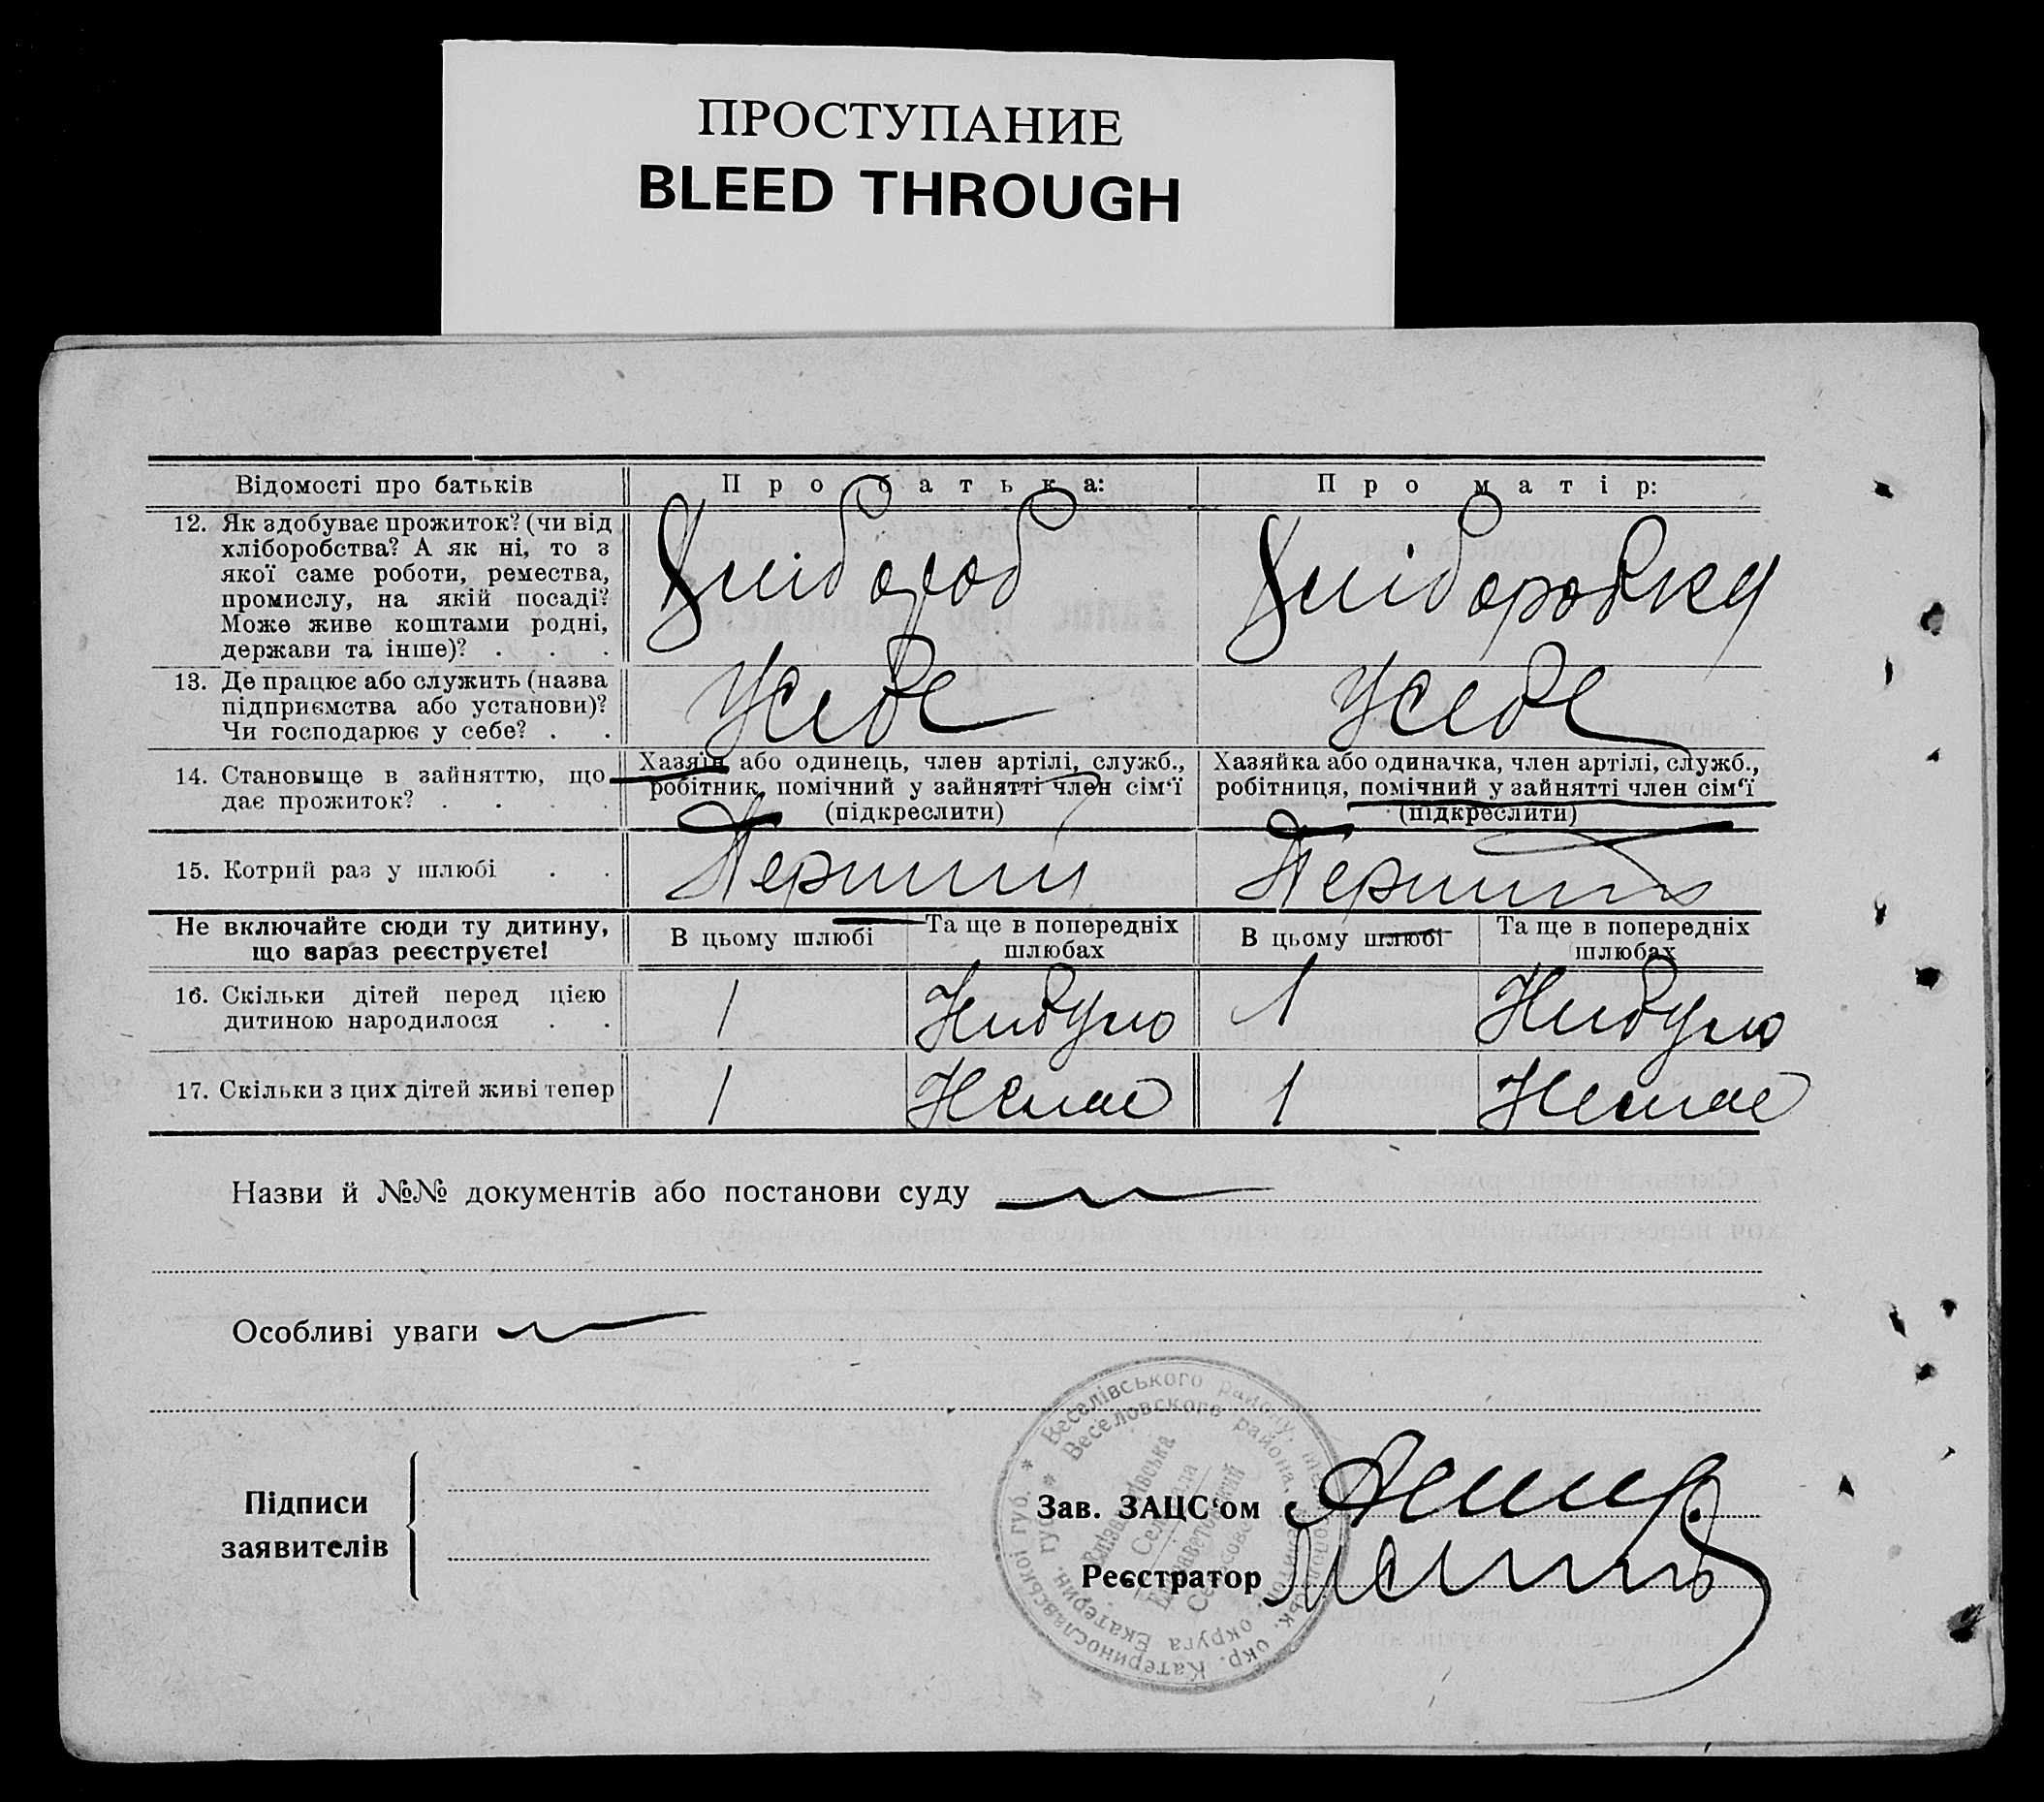 ПРОСТУПАНИЕ
BLEED THROUGH
Відомості про батьків
Про батька:
Про матір:
12. Як здобуває прожиток? (чи від
хліборобства? А як ні, то з
якої саме роботи, ремества,
промислу, на якій посаді?
Може живе коштами родні,
держави та інше)? . . .
Хлібороб
Хліборобка
13. Де працює або служить (назва
підприємства або установи)?
Чи господарює у себе? . .
У себе
У себе
14. Становище в зайняттю, що
дає прожиток? . . . .
Хазяїн або одинець, член артілі, служб.,
робітник, помічний у зайнятті член сім'ї
(підкреслити)
Хазяйка або одиначка, член артілі, служб.,
робітниця, помічний у зайнятті член сім'ї
(підкреслити)
15. Котрий раз у шлюбі . .
Перший
Перший
Не включайте сюди ту дитину,
що зараз реєструєте!
В цьому шлюбі
Та ще в попередніх
шлюбах
В цьому шлюбі
Та ще в попередніх
шлюбах
16. Скільки дітей перед цією
дитиною народилося . .
1
Небуло
1
Небуло
17. Скільки з цих дітей живі тепер
1
Немає
1
Немає
Назви й №№ документів або постанови суду
Особливі уваги
Підписи
заявителів
Зав. ЗАЦС'ом
Реєстратор
* Веселівського району, окр. Катеринославської губ.
* Веселовского района, округа Екатерин. Губ.